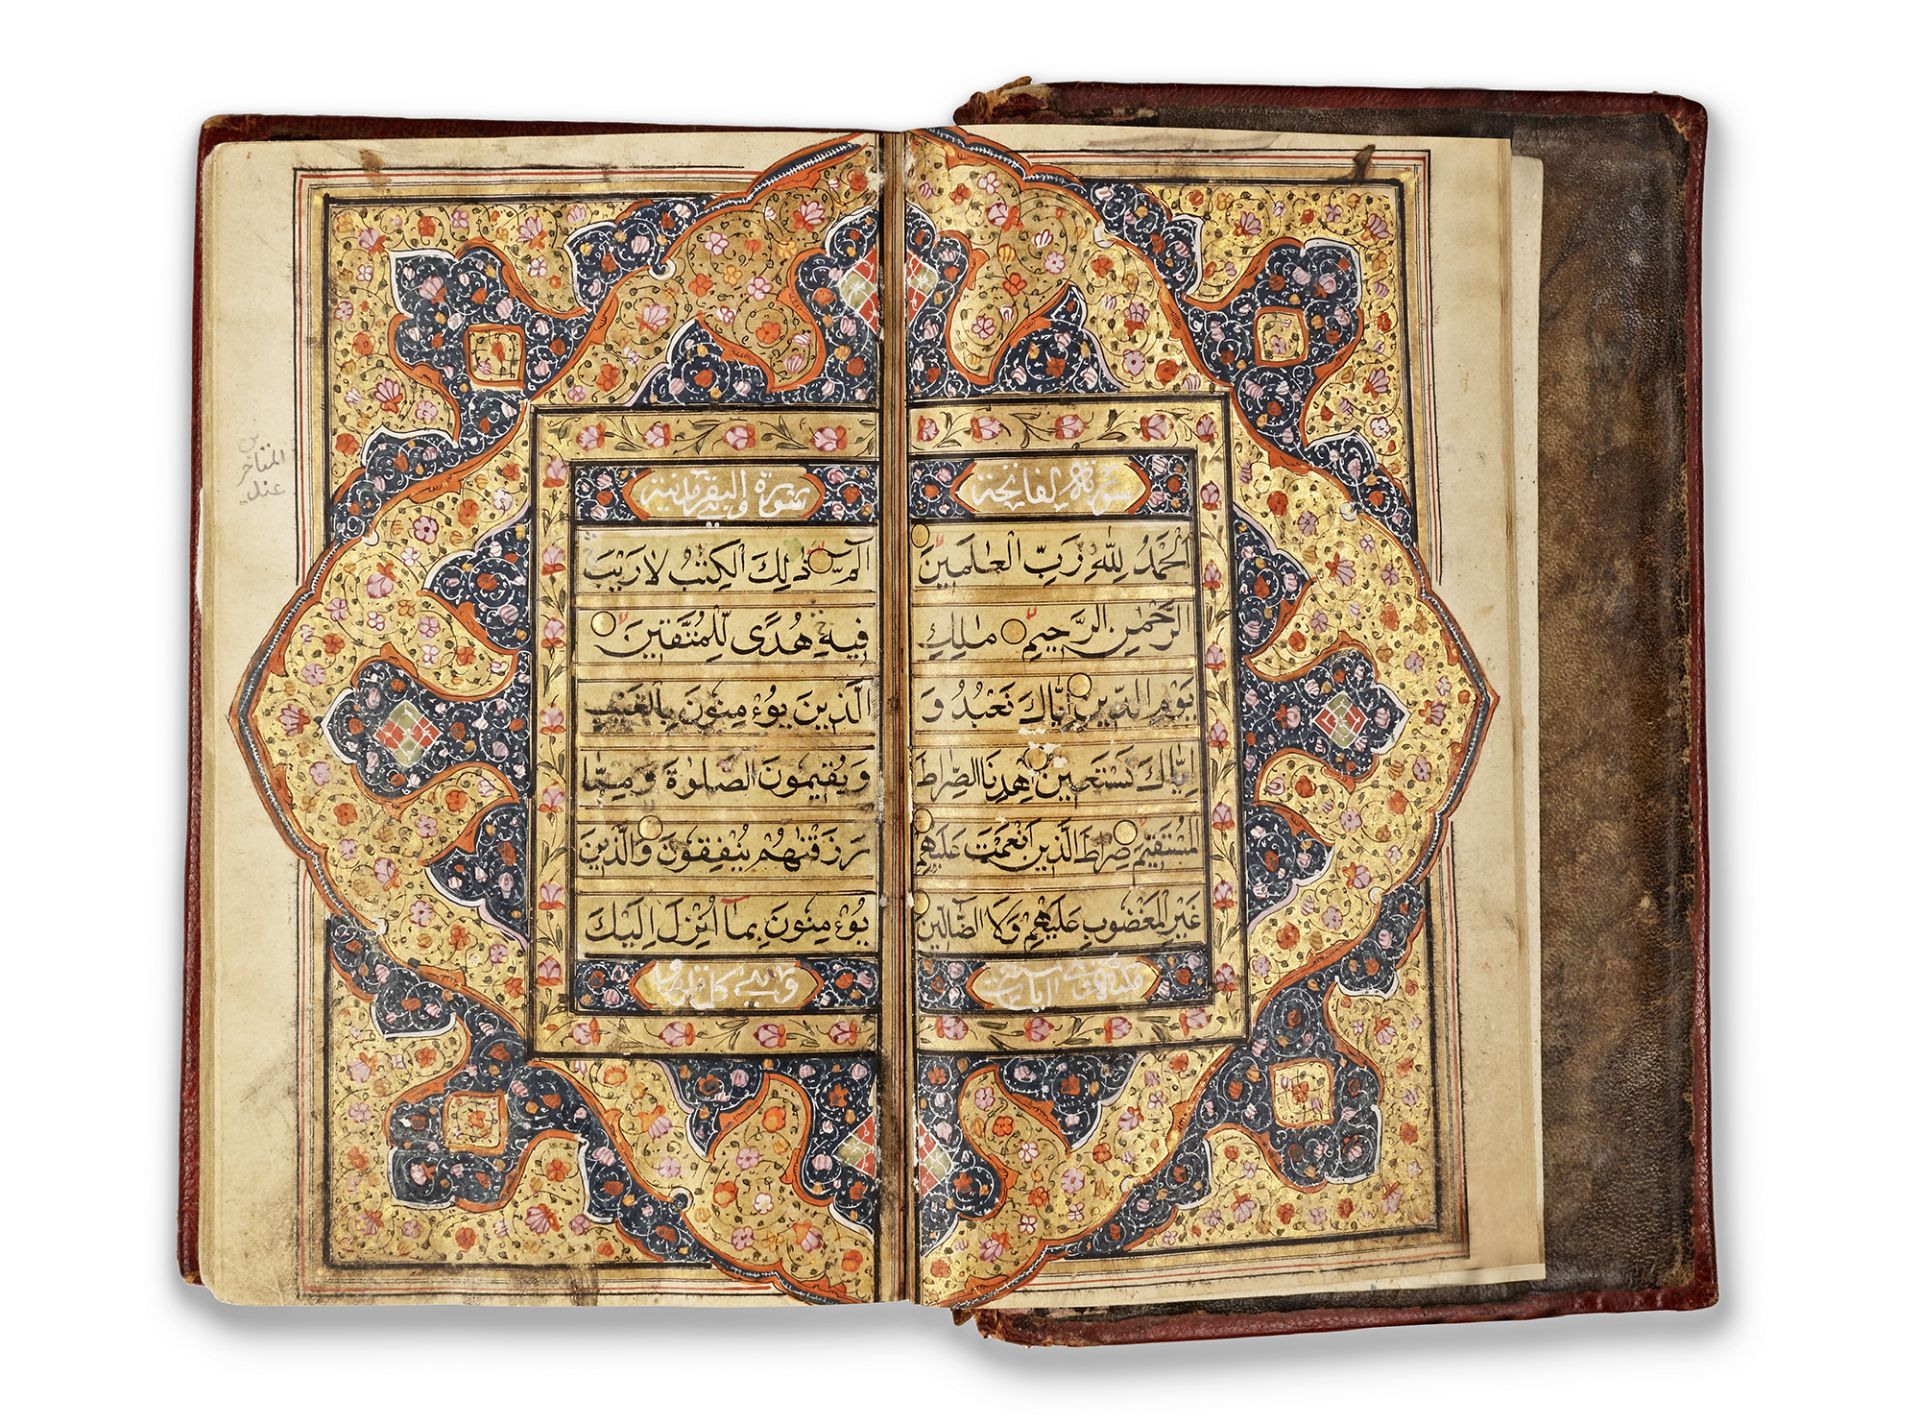 سورة الفاتحة
الْحَمْدُ لِلّٰهِ رَبِّ الْعٰلَمِيْنَ
الرَّحْمٰنِ الرَّحِيْمِ مٰلِكِ
يَوْمِ الدِّيْنِ اِيَّاكَ نَعْبُدُ وَ
اِيَّاكَ نَسْتَعِيْنُ اِهْدِنَا الصِّرَاطَ
الْمُسْتَقِيْمَ صِرَاطَ الَّذِيْنَ اَنْعَمْتَ عَلَيْهِمْ
غَيْرِ الْمَغْضُوْبِ عَلَيْهِمْ وَلَا الضَّآلِّيْنَ
سورة البقر
الٓمٓ ذٰلِكَ الْكِتٰبُ لَا رَيْبَ
فِيْهِ هُدًى لِّلْمُتَّقِيْنَ
الَّذِيْنَ يُؤْمِنُوْنَ بِالْغَيْبِ
وَيُقِيْمُوْنَ الصَّلٰوةَ وَمِمَّا
رَزَقْنٰهُمْ يُنْفِقُوْنَ وَالَّذِيْنَ
يُؤْمِنُوْنَ بِمَآ اُنْزِلَ اِلَيْكَ
عند